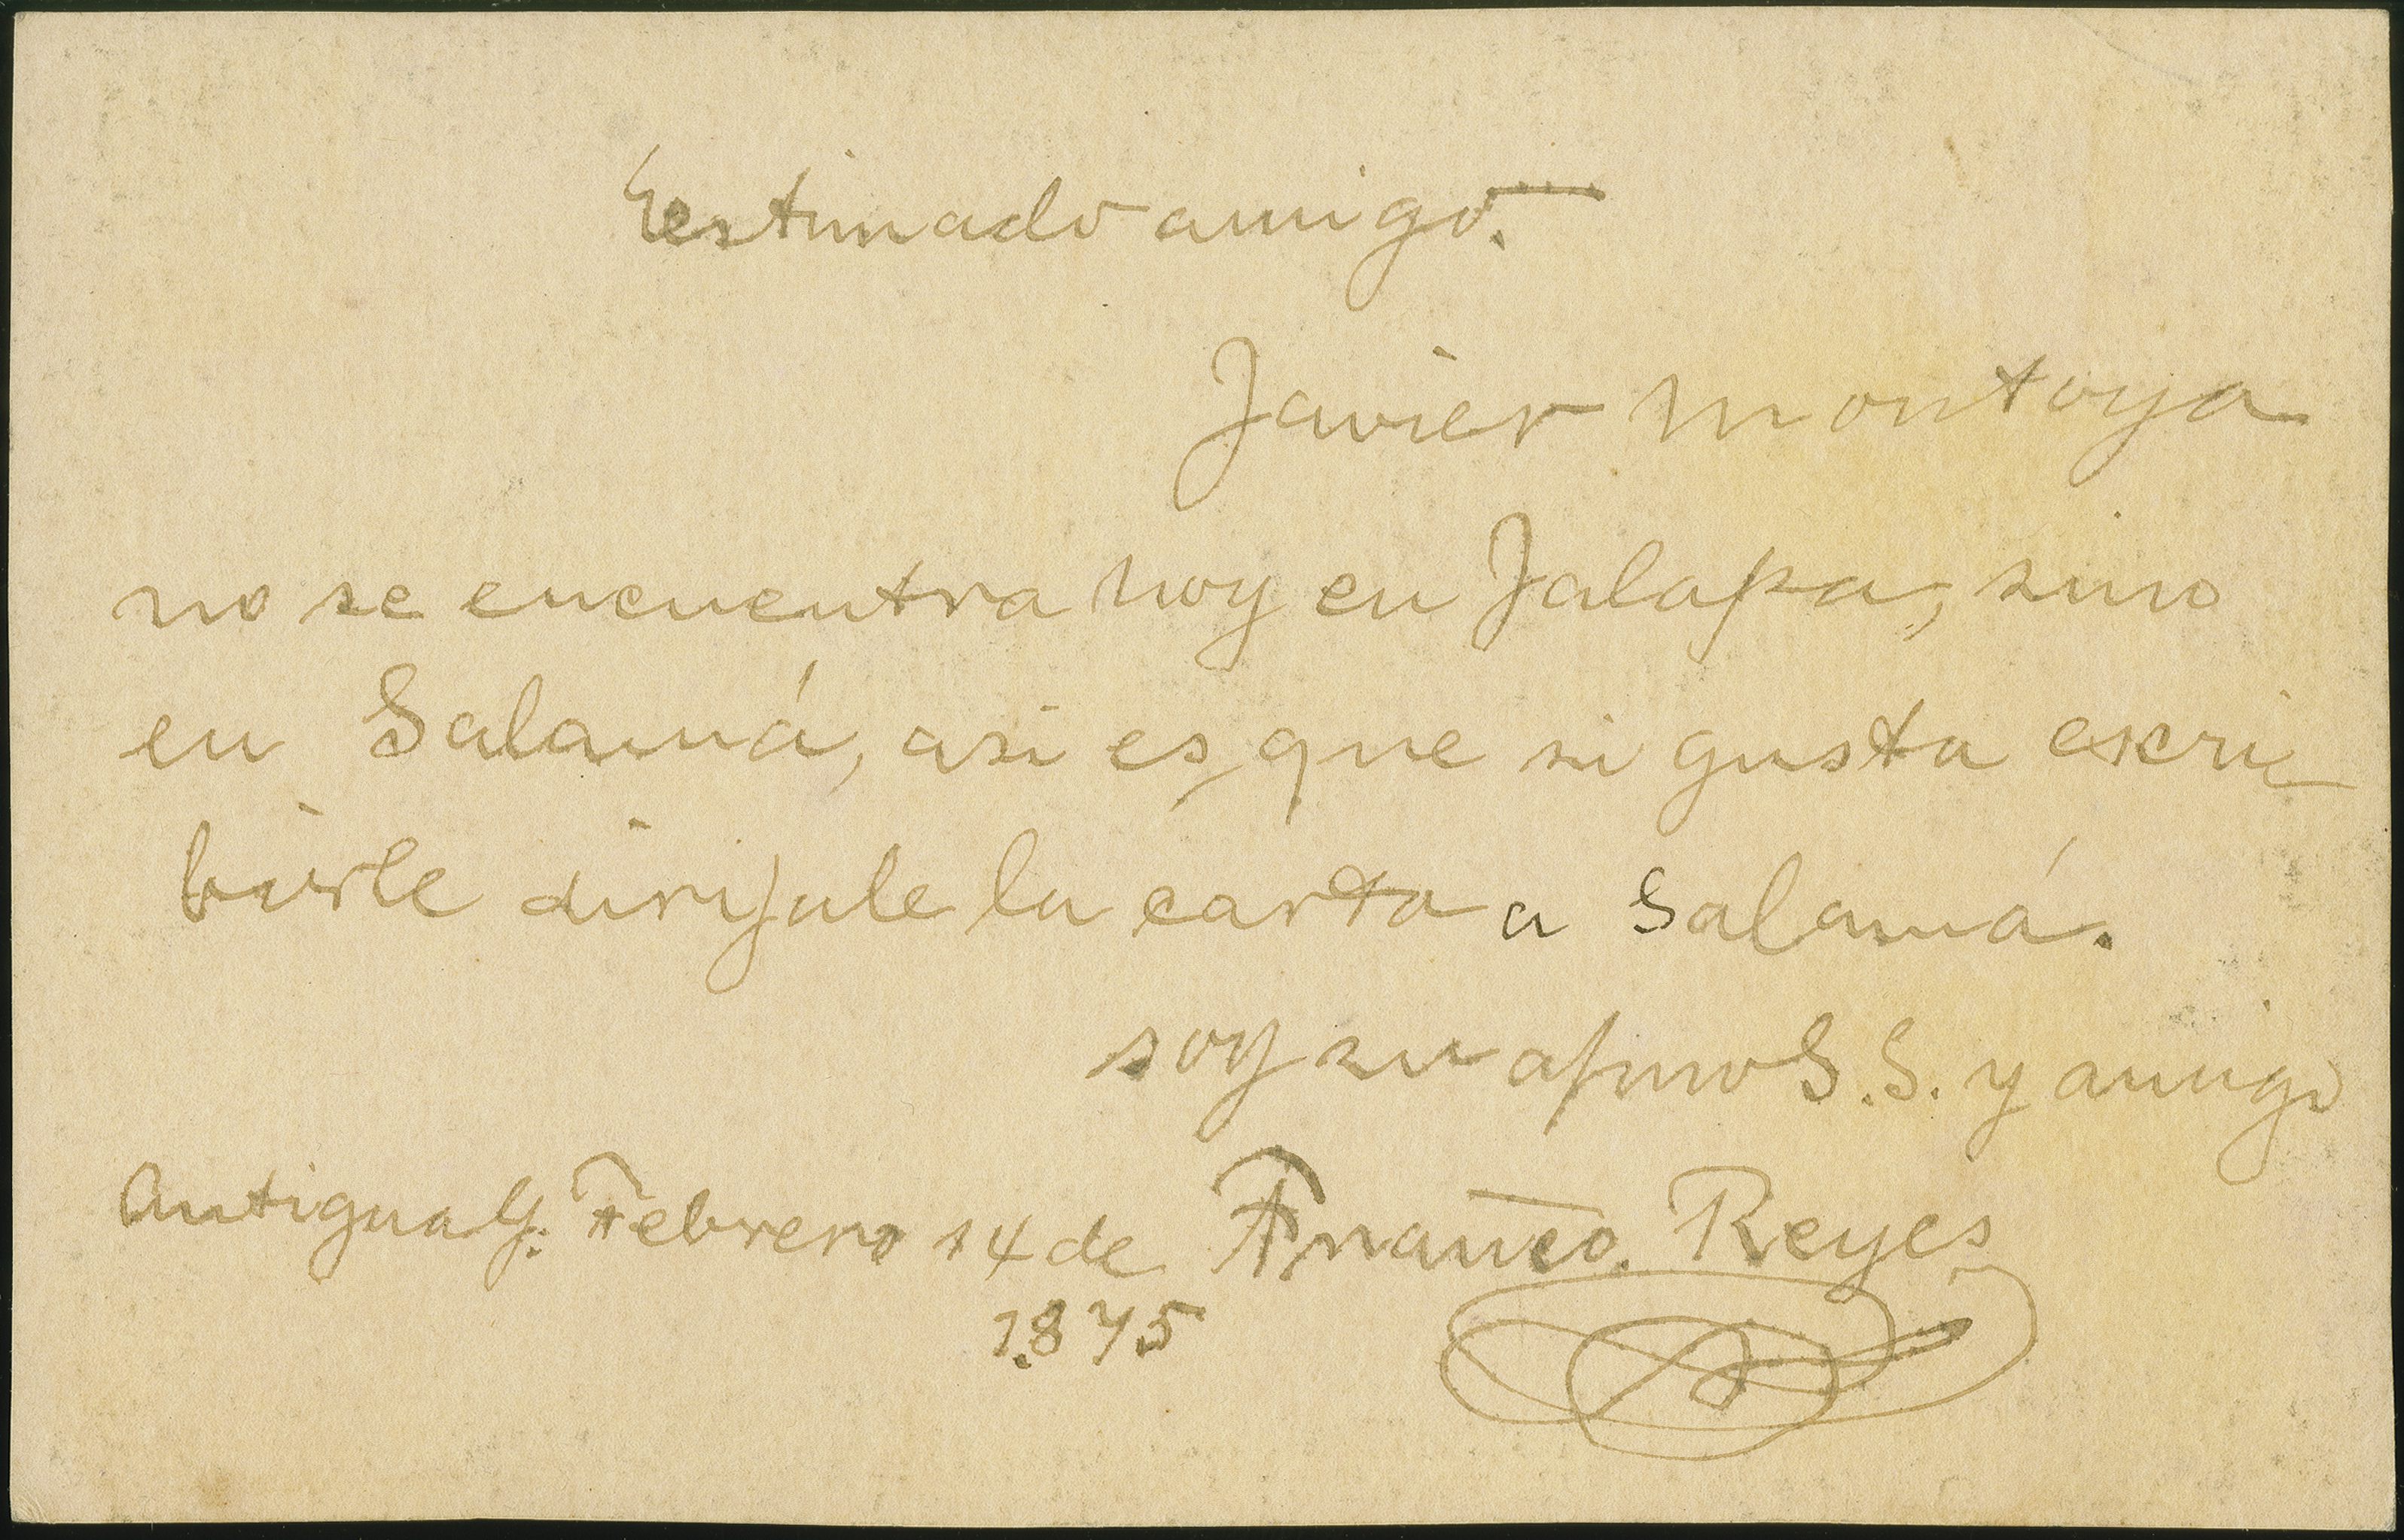 Eestimado amigo.
Javier Montoya
no se encuentra hoy en Jalapa, sino
en Salamá, asi es, que si gusta escri
birle dirijale la carta a Salamá.
soy su afmo S.S. y amigo
Antigua G. Febrero 14 de Franco. Reyes
1875